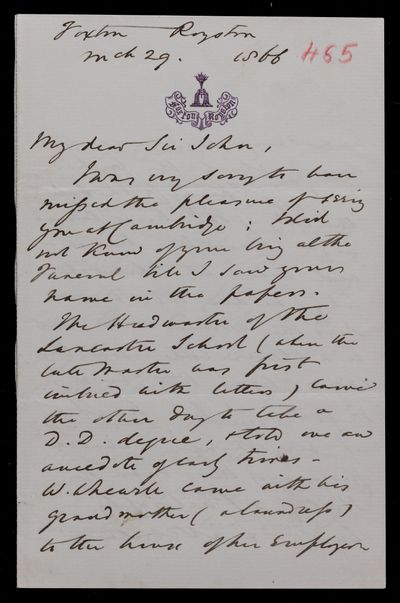 Foxton Royston
Mch 29. 1866 485
Foxton Royston
My dear Sir John,
I was very sorry to have
missed the pleasure of seeing
you at Cambridge: I did
not know of your being at the
Funeral till I saw your
name in the papers.
The Headmaster of the
Lancaster School (where the
late Master was first
imbued with letters) came
the other day to take a
D.D. degree, & told me an
anecdote of early times -
W. Whewell came with his
grandmother (a laundress)
to the house of her Employer